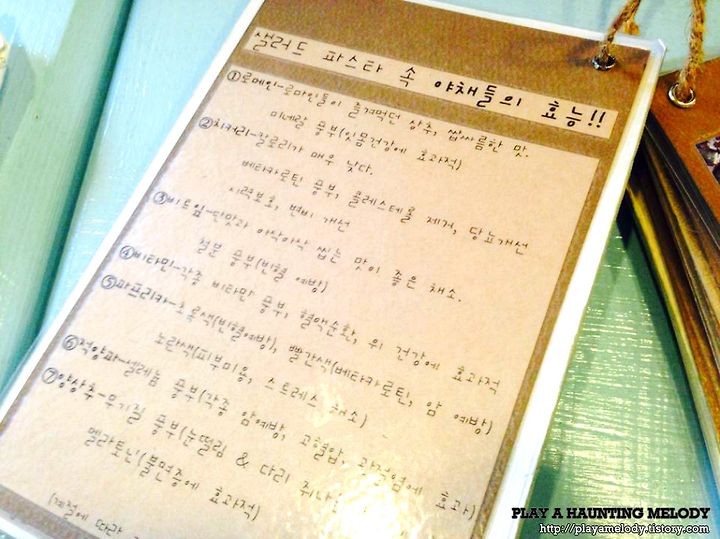 샐러드 파스타 속 야채들의 효능!!
①로메인-로마인들이 즐겨먹던 상추, 쌉싸름한 맛.
미네랄 풍부(잇몸건강에 효과적)
②치커리-칼로리가 매우 낮다.
베타카로틴 풍부, 콜레스테롤 제거, 당뇨개선
시력보호, 변비 개선
③비트잎-단맛과 아삭아삭 씹는 맛이 좋은 채소.
철분 풍부(빈혈 예방)
④비타민-각종 비타만 풍부, 혈액순환, 위 건강에 효과적
⑤파프리카-초록색(빈혈예방), 빨간색(베타카로틴, 암 예방)
노란색(피부미용, 스트레스 해소)
⑥적양파-셀레늄 풍부(각종 암예방, 고혈압, 과적염에 효과)
⑦양상추-무기질 풍부(눈떨림 & 다리 쥐나
멜라토닌(불면증에 효과적)
(계절에 따라
PLAY A HAUNTING MELODY
http://playamelody.tistory.com